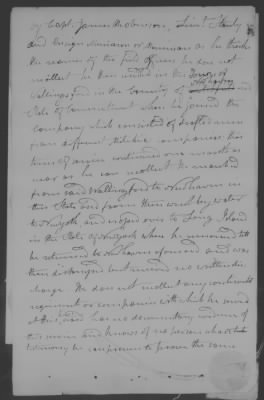 by Capt. James Robinson, Lieut. Stanly
and Ensign Merriman or Merriman as he thinks
the names of the field officers he does not
recollect he then resided in the Town of
Wallingford in the County of New Haven and
State of Connecticut when he joined the
Company which consisted of drafted men
from different Militia companies this
term of service continued one month as
near as he can recollect he marched
from said Wallingford to New haven in
this State and from thence went by water
to New York and crossed over to Long Island
in the State of New York where he remained till
he returned to New haven aforesaid and was
then discharged but received no written dis
charge He does not recollect any continental
regiment or companies with which he served
at this, and has no documentary evidence of
this service and knows of no person whose
testimony he can procure to prove the same